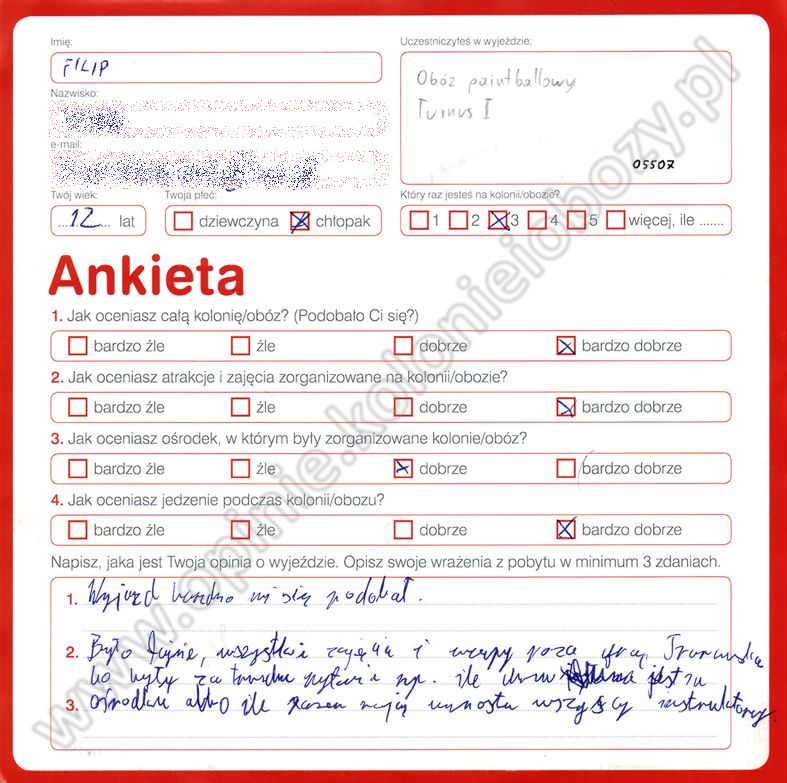 Imię:
FILIP
Nazwisko:
e-mail:
Twój wiek:
....12.... lat
Twoja płeć:
dziewczyna chłopak
Uczestniczyłeś w wyjeździe:
Obóz paintballowy
Turnus I
05507
Który raz jesteś na kolonii/obozie?
1 2 3 4 5 więcej, ile .......
Ankieta
1. Jak oceniasz całą kolonię/obóz? (Podobało Ci się?)
bardzo źle źle dobrze bardzo dobrze
2. Jak oceniasz atrakcje i zajęcia zorganizowane na kolonii/obozie?
bardzo źle źle dobrze bardzo dobrze
3. Jak oceniasz ośrodek, w którym były zorganizowane kolonie/obóz?
bardzo źle źle dobrze bardzo dobrze
4. Jak oceniasz jedzenie podczas kolonii/obozu?
bardzo źle źle dobrze bardzo dobrze
Napisz, jaka jest Twoja opinia o wyjeździe. Opisz swoje wrażenia z pobytu w minimum 3 zdaniach.
1. Wyjazd bardzo mi się podobał.
2. Było fajnie, wszystkie zajęcia i poza grą
bo były za trudne pytania np. ile jest na
3. ośrodku albo ile razem mają wzrostu wszyscy instruktorzy.
www.opinie.kolonieiobozy.pl